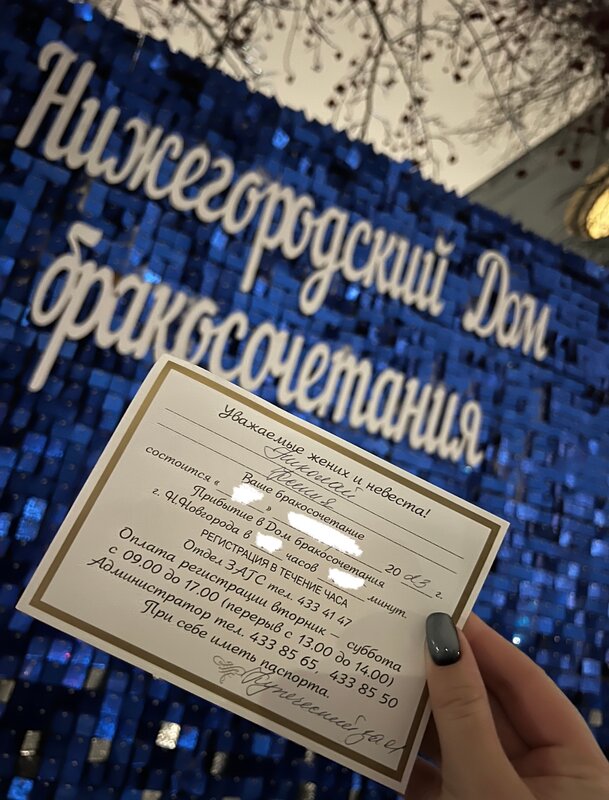 Нижегородский Дом
бракосочетания
Уважаемые жених и невеста!
Николай
Ксения
Ваше бракосочетание
состоится « » 20 23 г.
Прибытие в Дом бракосочетания
г. Н.Новгорода в часов минут.
РЕГИСТРАЦИЯ В ТЕЧЕНИЕ ЧАСА
Отдел ЗАГС тел. 433 41 47
Оплата регистрации вторник – суббота
с 09.00 до 17.00 (перерыв с 13.00 до 14.00)
Администратор тел. 433 85 65, 433 85 50
При себе иметь паспорта.
Купеческий зал